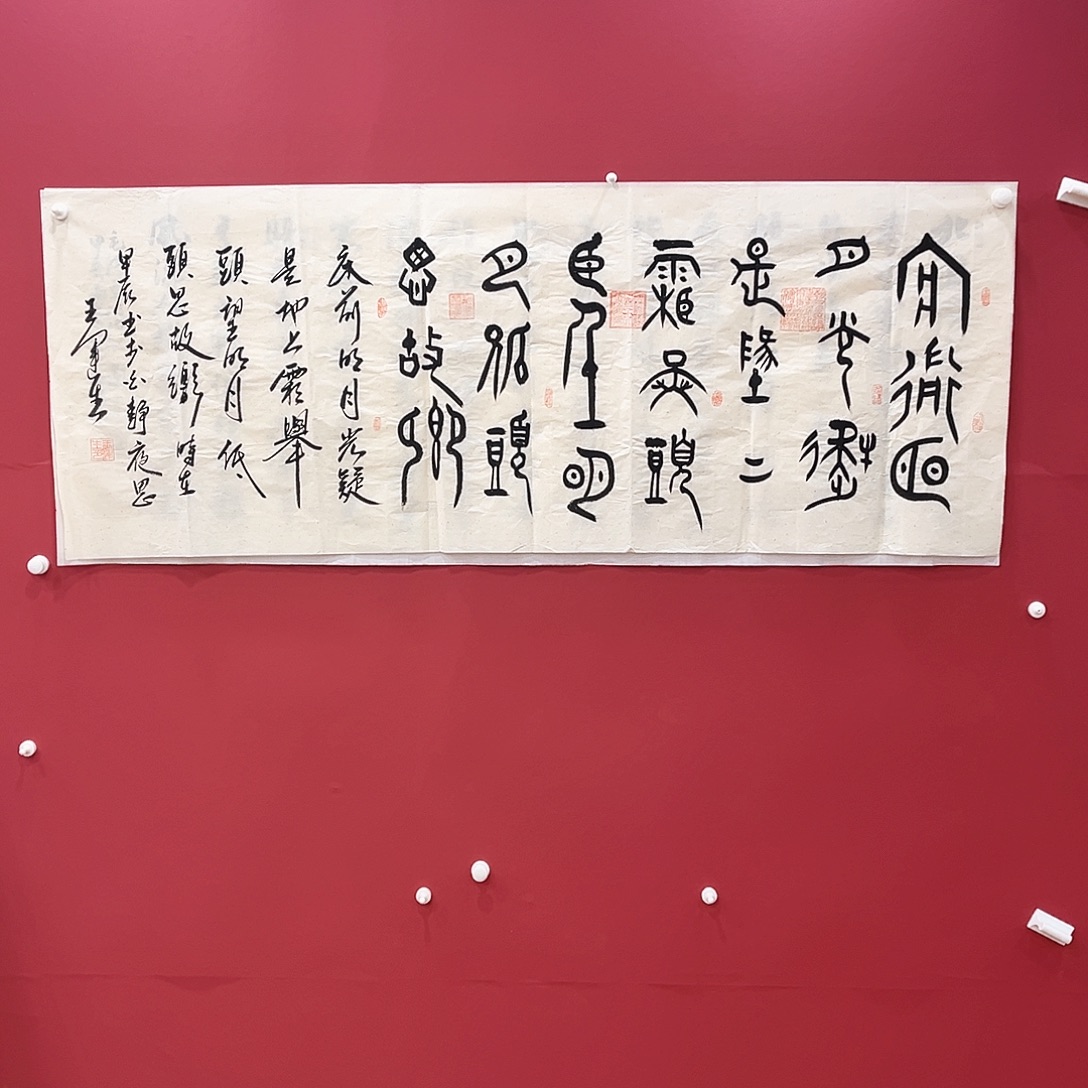 床前明
月光疑
是墬二
霜舉頭
望明
月低頭
思故鄉
床前明月光疑
是地上霜舉
頭望明月低
頭思故鄉 時在
甲辰書李白靜夜思
王